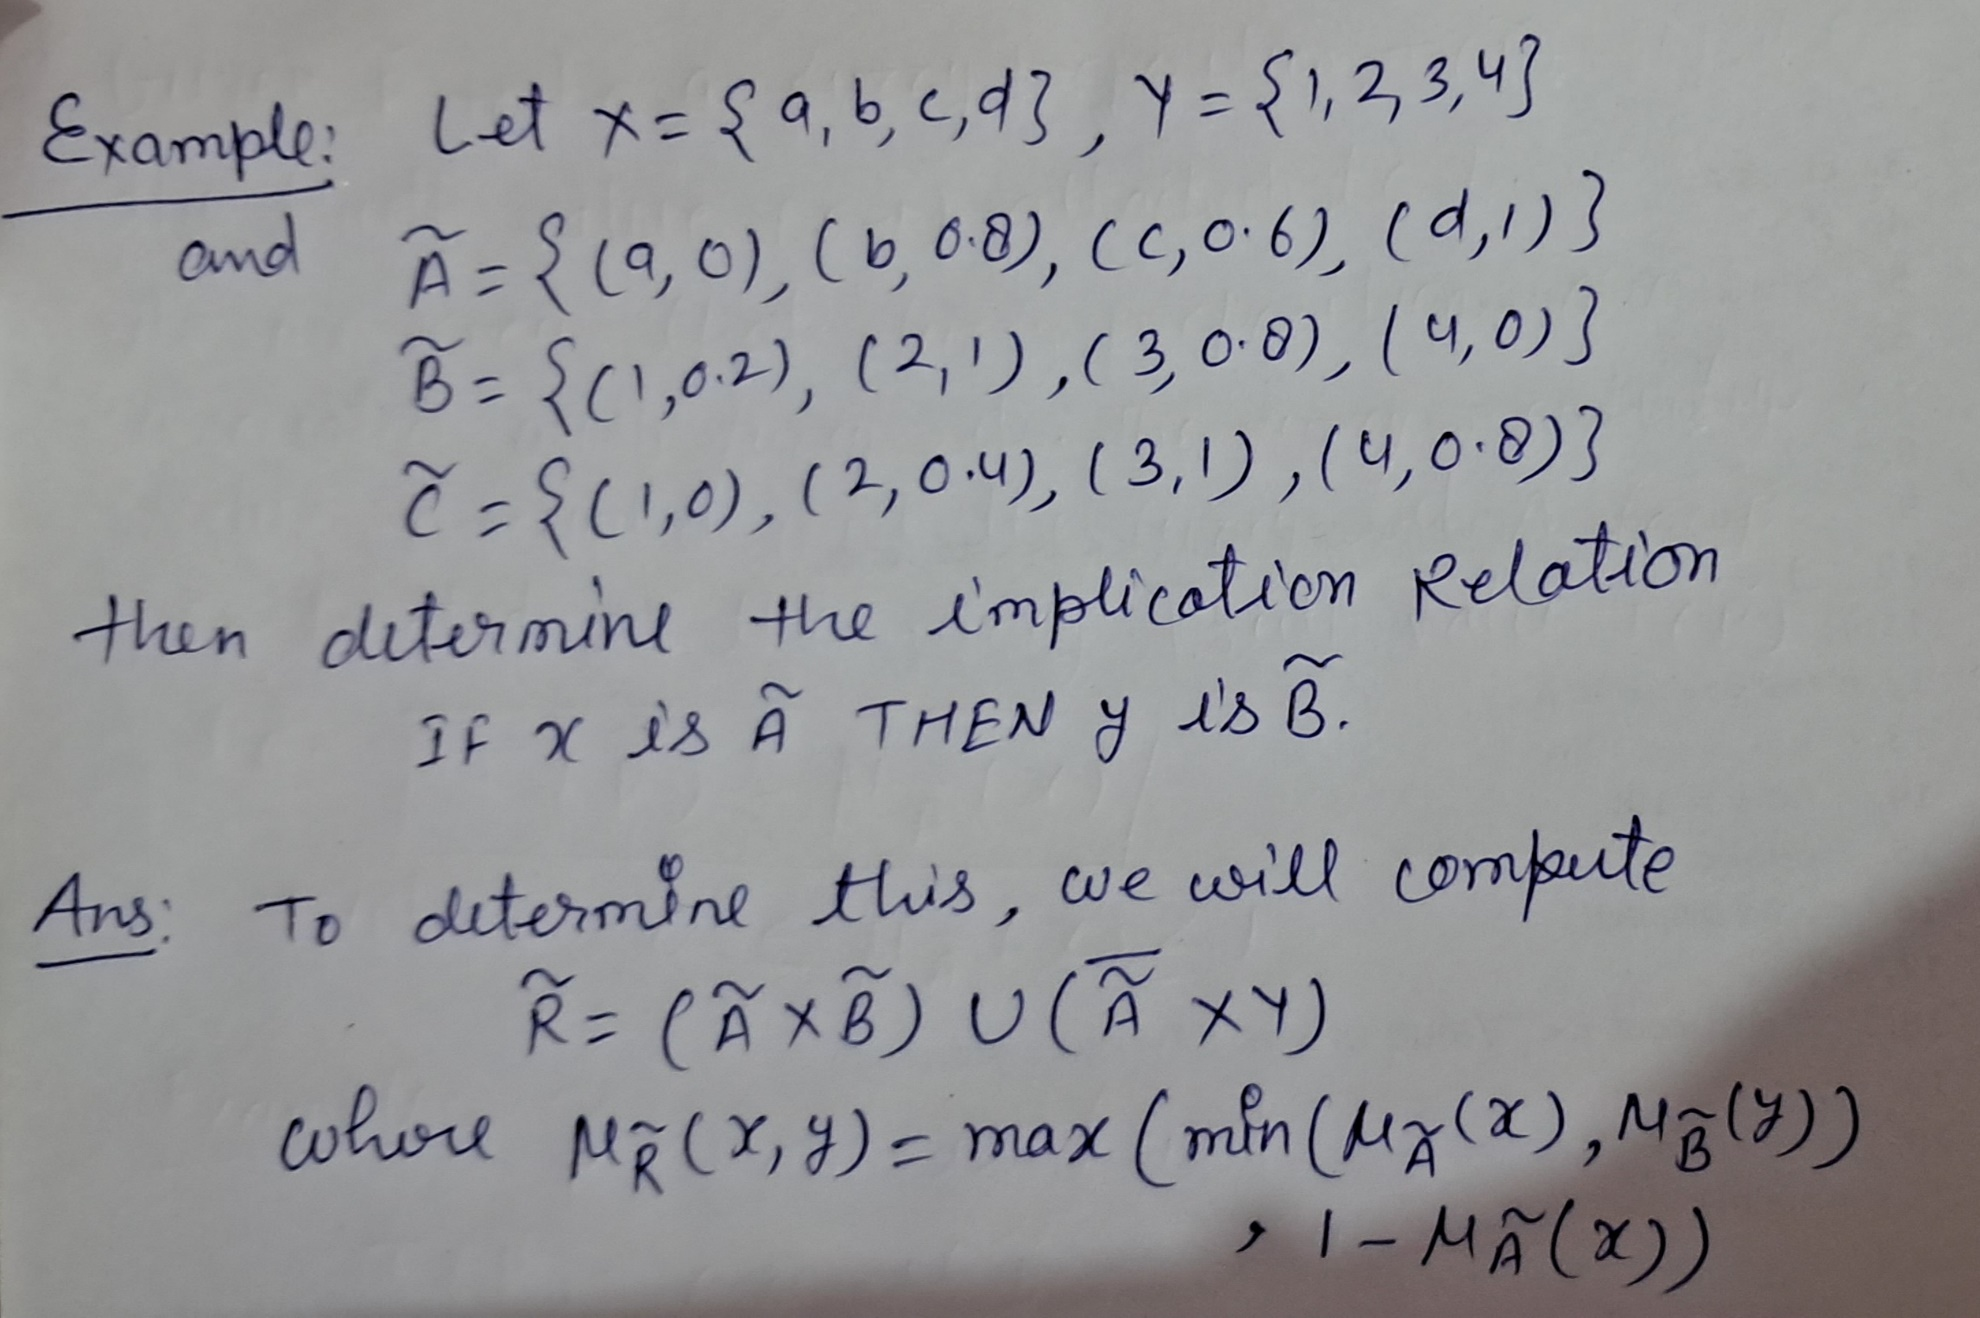 Example: Let X = {a, b, c, d}, Y = {1, 2, 3, 4}
and Ã = {(a, 0), (b, 0.8), (c, 0.6), (d, 1)}
B̃ = {(1, 0.2), (2, 1), (3, 0.8), (4, 0)}
C̃ = {(1, 0), (2, 0.4), (3, 1), (4, 0.8)}
then determine the implication Relation
IF x is Ã THEN y is B̃.
Ans: To determine this, we will compute
R̃ = (Ã × B̃) ∪ (Ã̅ × Y)
where μ_R̃(x, y) = max (min (μ_Ã(x), μ_B̃(y))
, 1 - μ_Ã(x))